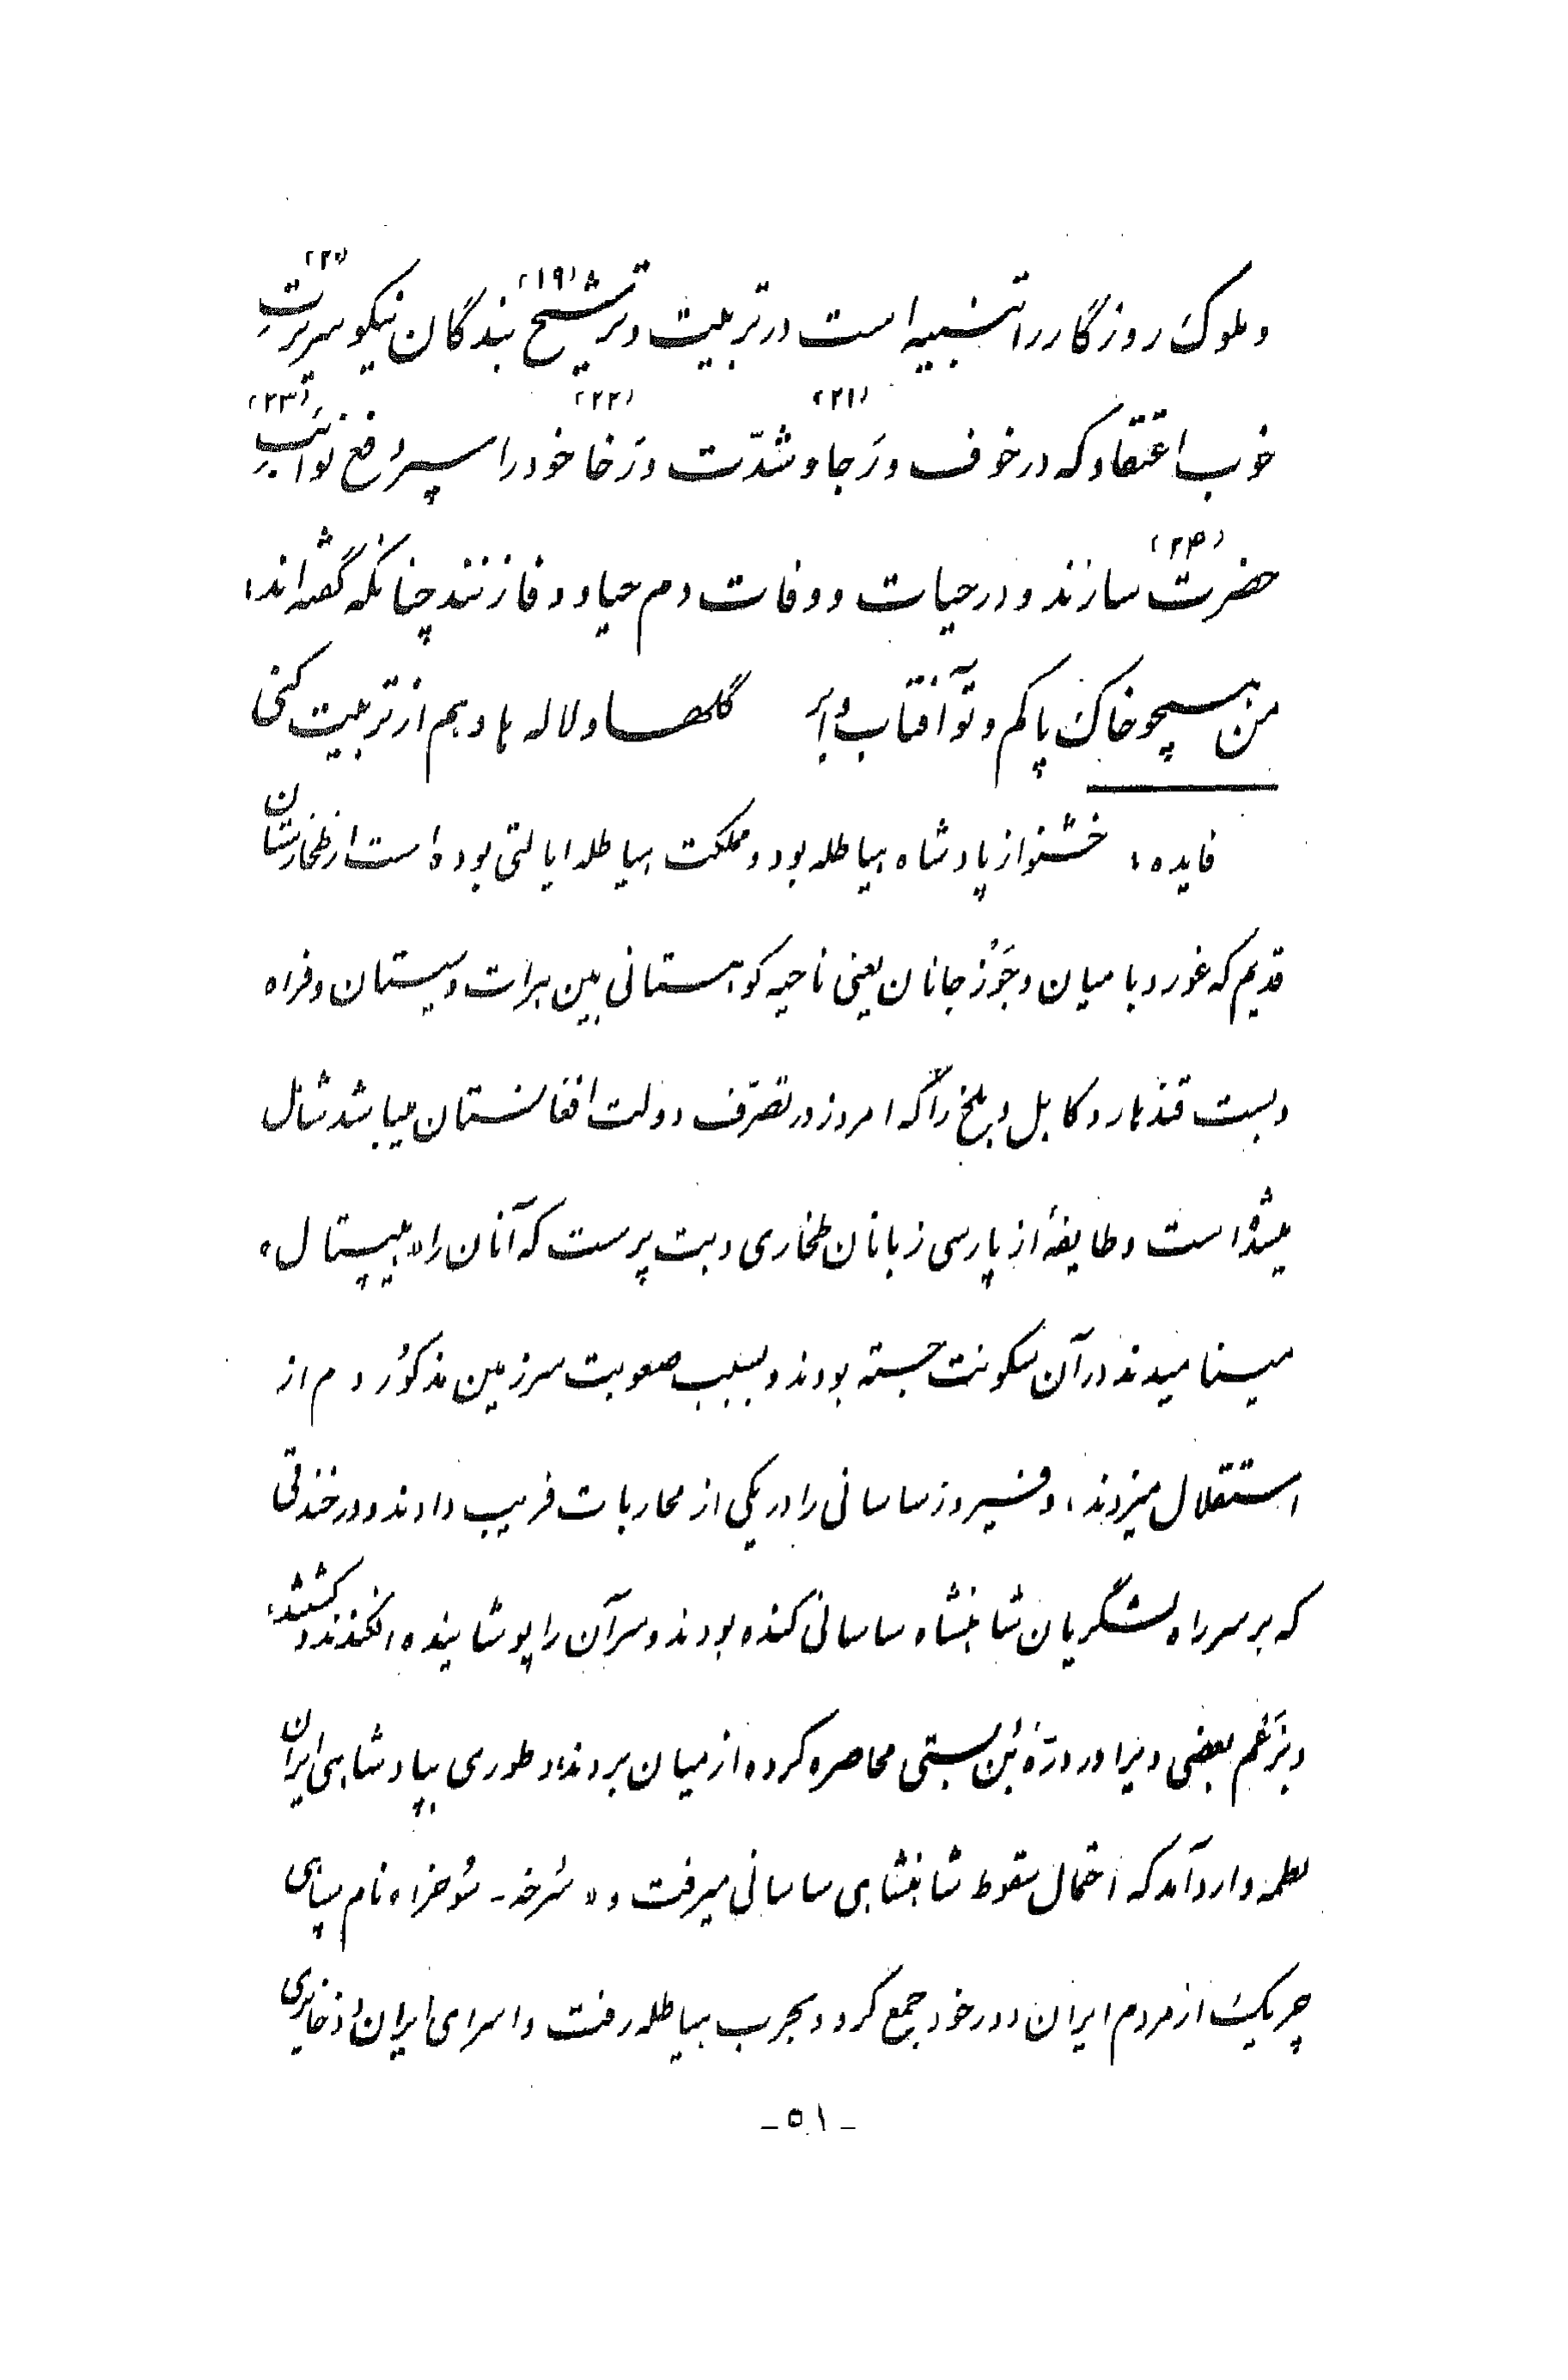 و ملوک روزگار را تنبیه است در تربیت و ترشیح (۱۹) بندگان نیکو سریرت (۲۰)
خوب اعتقاد که در خوف و رَجا (۲۱) و شدّت و رَخا (۲۲) خود را سپر دفع نوائب (۲۳)
حضرت (۲۴) سازند و در حیات و وفات دم حیا و وفا زنند چنانکه گفته‌اند:
من همچو خاک پاکم و تو آفتاب و ابر گلها و لاله ها دهم ار تربیت کنی
فایده: خشنواز پادشاه هیاطله بود و مملکت هیاطله ایالتی بوده است از طخارستان
قدیم که غور و بامیان و جَوْزجانان یعنی ناحیه کوهستانی بین هرات و سیستان و فراه
و بست قندهار و کابل و بلخ را که امروز در تصرّف دولت افغانستان میباشد شامل
میشده است و طایفهٔ از پارسی زبانان طخاری و بت پرست که آنان را «هیپتال»
مینامیدند در آن سکونت جسته بودند و بسبب صعوبت سرزمین مذکور دم از
استقلال میزدند، و فیروز ساسانی را در یکی از محاربات فریب دادند و در خندقی
که بر سر راه لشگریان شاهنشاه ساسانی کنده بودند و سر آن را پوشانیده افکندند و کشتند،
و بزَعْم بعضی ویرا در درّهٔ بُن بستی محاصره کرده از میان بردند و طوری بپادشاهی ایران
لطمه وارد آمد که احتمال سقوط شاهنشاهی ساسانی میرفت و «سُرخد - سُوخرا» نام سپاهی
چریک از مردم ایران دور خود جمع کرد و بحرب هیاطله رفت و اسرای ایران و ذخایری
- ۵۱ -